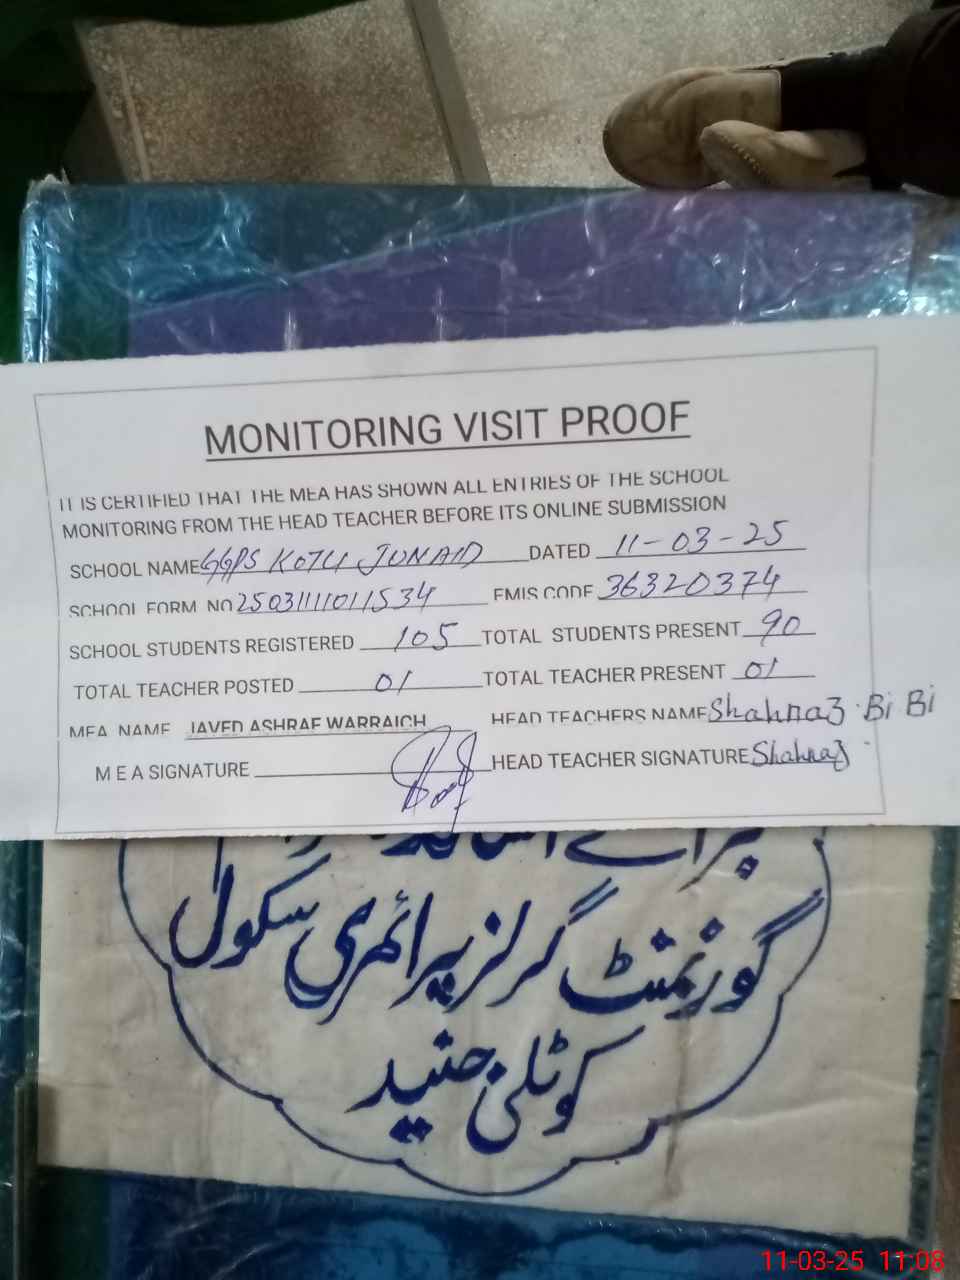 MONITORING VISIT PROOF
IT IS CERTIFIED THAT THE MEA HAS SHOWN ALL ENTRIES OF THE SCHOOL
MONITORING FROM THE HEAD TEACHER BEFORE ITS ONLINE SUBMISSION
SCHOOL NAME GGPS KOTLI JUNAID DATED 11-03-25
SCHOOL FORM NO 25031111011534 EMIS CODE 36320374
SCHOOL STUDENTS REGISTERED 105 TOTAL STUDENTS PRESENT 90
TOTAL TEACHER POSTED 01 TOTAL TEACHER PRESENT 01
MEA NAME JAVED ASHRAF WARRAICH HEAD TEACHERS NAME Shahnaz Bi Bi
M E A SIGNATURE HEAD TEACHER SIGNATURE Shahnaz
گورنمنٹ گرلز پرائمری سکول
کوٹلی جنید
11-03-25 11:08